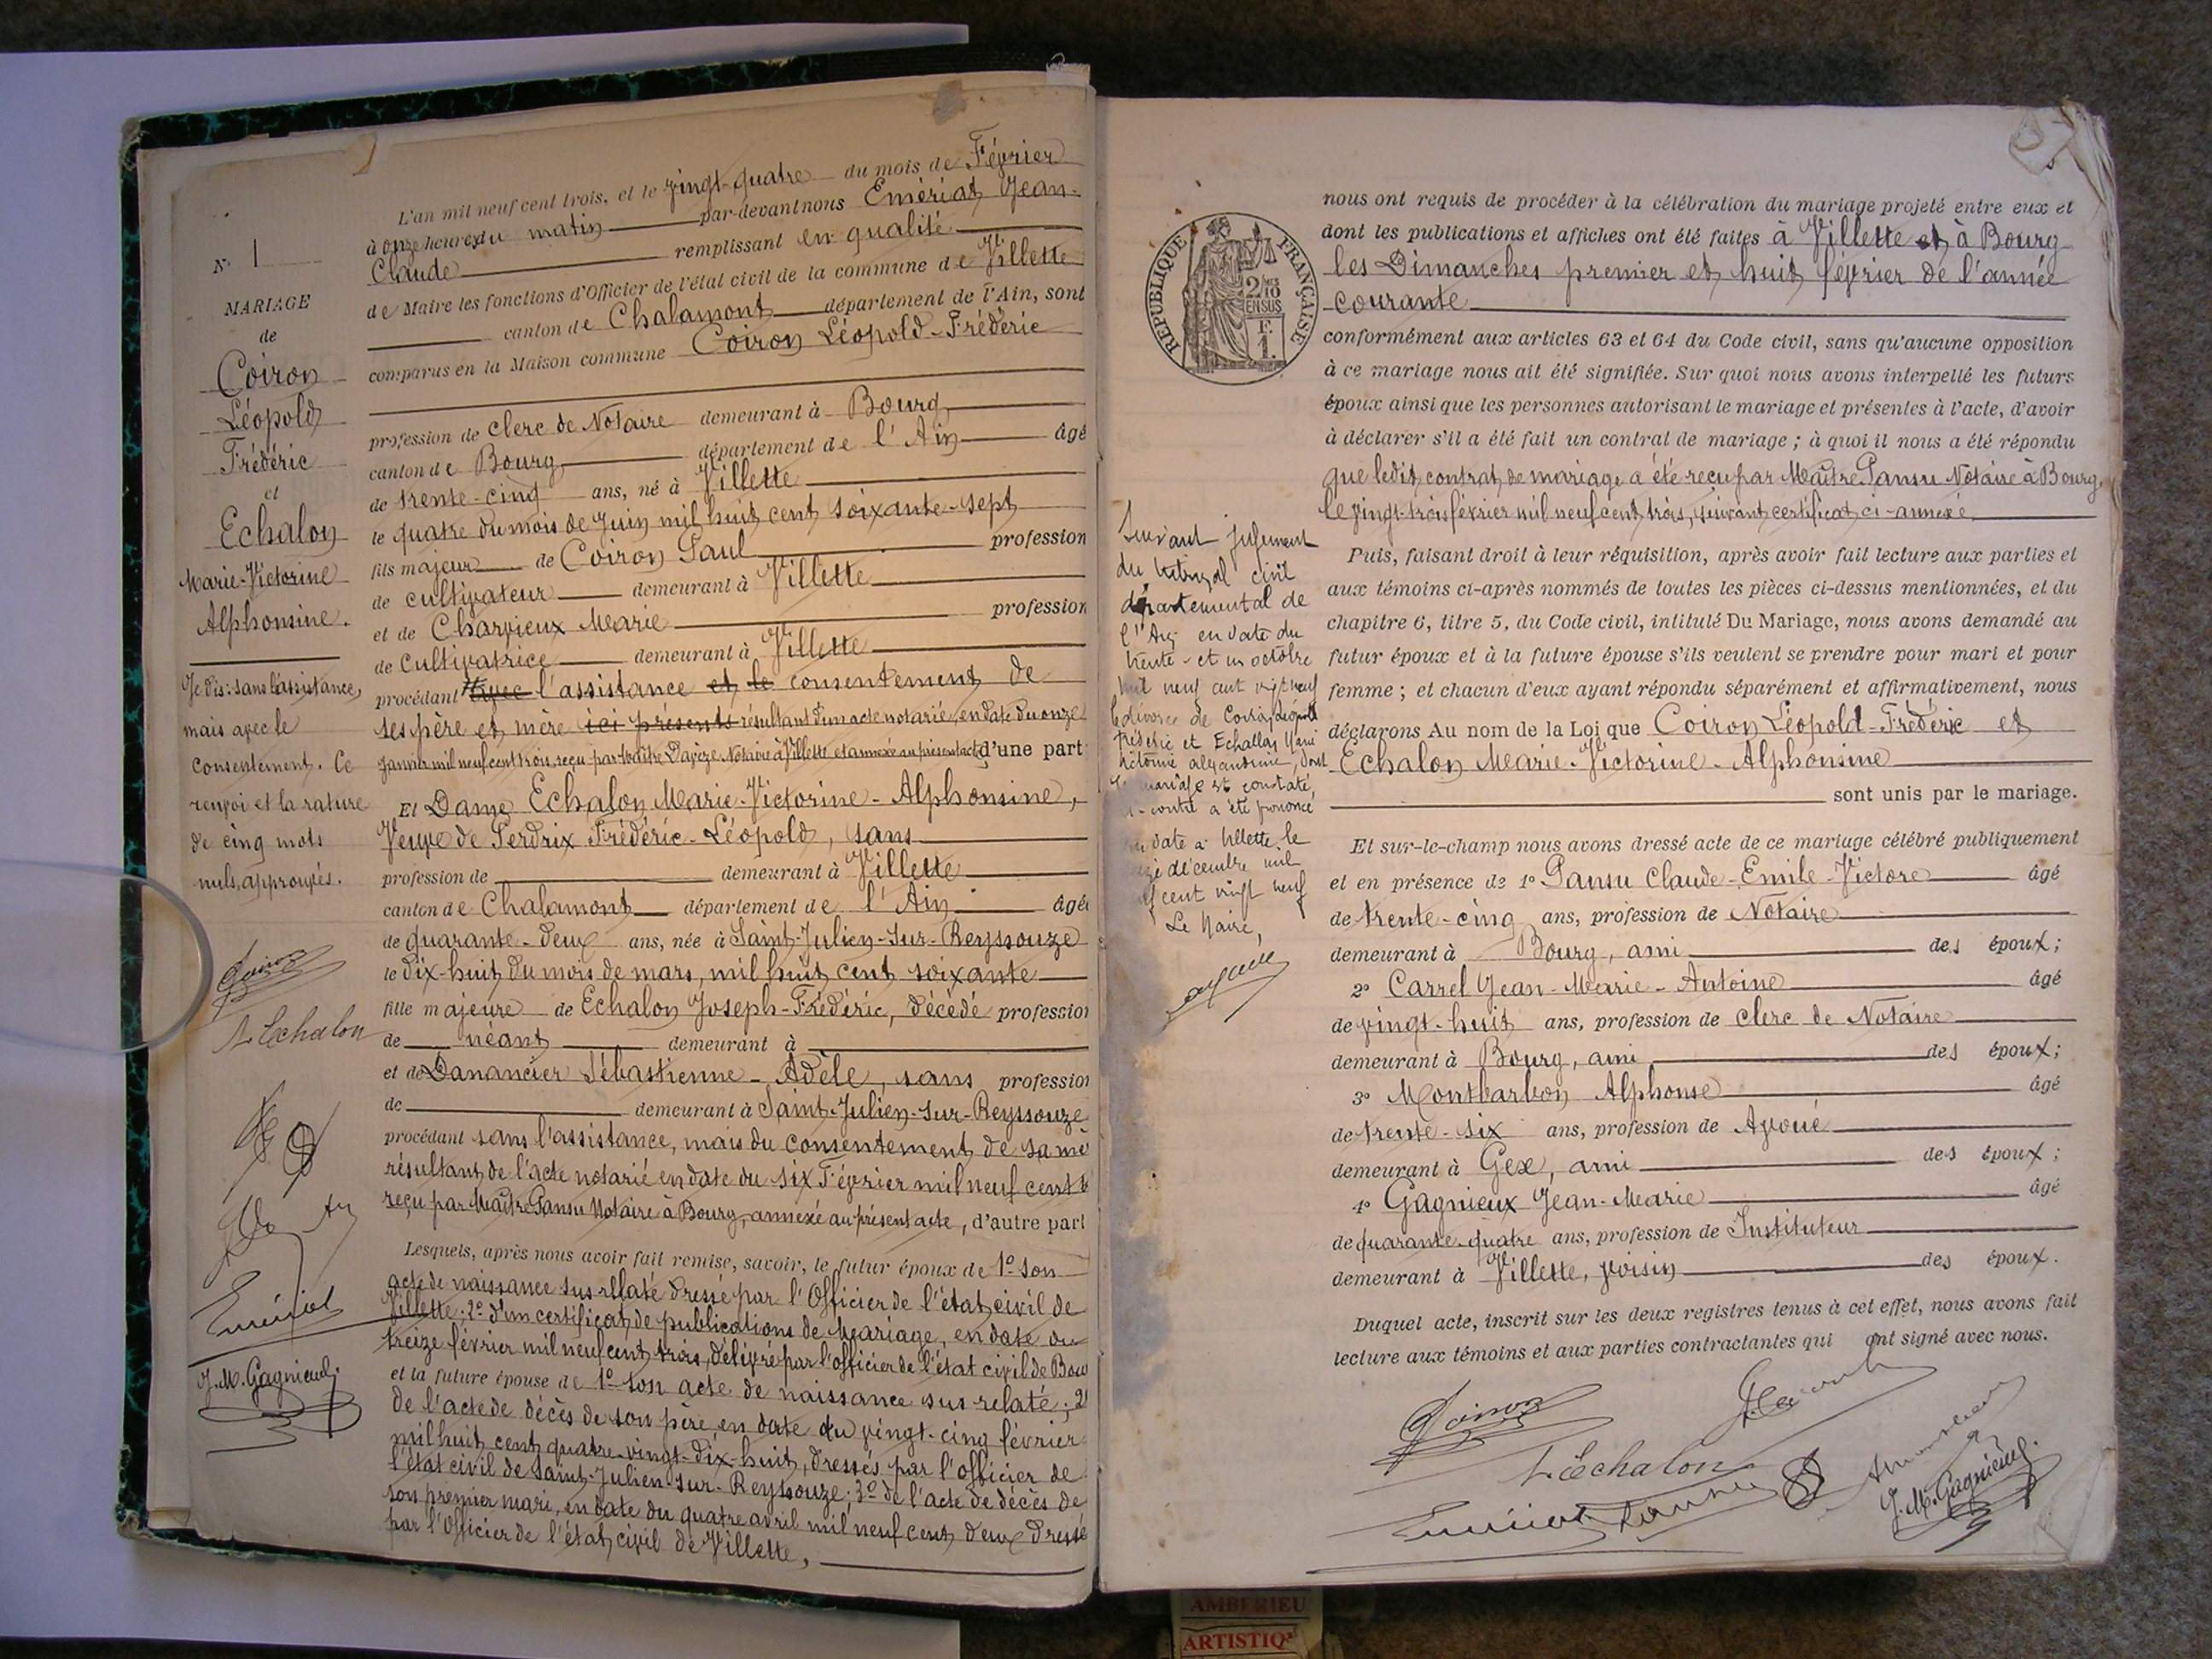 N° 1
MARIAGE
de
Coiron
Léopold
Frédéric
et
Echalon
Marie-Victorine
Alphonsine.
Je dis: sans l'assistance,
mais avec le
consentement. Ce
renvoi et la rature
de cinq mots
nuls, approuvés.
Coiron
V. Echalon
Emériat
J. M. Gagnieux
L'an mil neuf cent trois, et le vingt-quatre du mois de Février
à onze heures du matin par-devant nous Emériat Jean-
Claude remplissant en qualité
de Maire les fonctions d'Officier de l'état civil de la commune de Villette
canton de Chalamont département de l'Ain, sont
comparus en la Maison commune Coiron Léopold-Frédéric
profession de clerc de Notaire demeurant à Bourg
canton de Bourg département de l'Ain âgé
de trente-cinq ans, né à Villette
le quatre du mois de Juin mil huit cent soixante-sept
fils majeur de Coiron Paul profession
de cultivateur demeurant à Villette
et de Charvieux Marie profession
de cultivatrice demeurant à Villette
procédant avec l'assistance et le consentement de
ses père et mère ici présents résultant d'un acte notarié, en date du onze
Janvier mil neuf cent trois, reçu par Maître Notaire à Villette et annexé au présent acte, d'une part
Et Dame Echalon Marie-Victorine-Alphonsine,
Veuve de Perdrix Frédéric-Léopold, sans
profession de demeurant à Villette
canton de Chalamont département de l'Ain âgée
de quarante-deux ans, née à Saint-Julien-sur-Reyssouze
le dix-huit du mois de mars, mil huit cent soixante
fille majeure de Echalon Joseph-Frédéric, décédé profession
de néant demeurant à
et de Danancier Sébastienne-Adèle, sans profession
de demeurant à Saint-Julien-sur-Reyssouze
procédant sans l'assistance, mais du consentement de sa mè
résultant de l'acte notarié en date du six Février mil neuf cent
reçu par Maître Pansu Notaire à Bourg, annexé au présent acte, d'autre part
Lesquels, après nous avoir fait remise, savoir, le futur époux de 1° son
acte de naissance sus-relaté dressé par l'Officier de l'état civil de
Villette; 2° d'un certificat de publications de Mariage, en date du
treize février mil neuf cent trois, délivré par l'officier de l'état civil de Bou
et la future épouse de 1° son acte de naissance sus-relaté; 2°
de l'acte de décès de son père, en date du vingt-cinq février
mil huit cent quatre-vingt-dix-huit, dressés par l'officier de
l'état civil de Saint-Julien-sur-Reyssouze; 3° de l'acte de décès de
son premier mari, en date du quatre avril mil neuf cent deux dressé
par l'Officier de l'état civil de Villette,
RÉPUBLIQUE FRANÇAISE
2/10
EN SUS
F.
1.
Suivant jugement
du tribunal civil
départemental de
l'Ain en date du
trente-et-un octobre
mil neuf cent vingt neuf
le divorce de Coiron Léopold
Frédéric et Echallon Marie
Victorine alexandrine, dont
mariage est constaté,
contre a été prononcé
date à Villette, le
décembre mil
cent vingt neuf
Le Maire,
nous ont requis de procéder à la célébration du mariage projeté entre eux et
dont les publications et affiches ont été faites à Villette et à Bourg
les Dimanches premier et huit février de l'année
courante
conformément aux articles 63 et 64 du Code civil, sans qu'aucune opposition
à ce mariage nous ait été signifiée. Sur quoi nous avons interpellé les futurs
époux ainsi que les personnes autorisant le mariage et présentes à l'acte, d'avoir
à déclarer s'il a été fait un contrat de mariage; à quoi il nous a été répondu
que ledit contrat de mariage a été reçu par Maître Pansu Notaire à Bourg,
le vingt-trois février mil neuf cent trois, suivant certificat ci-annexé.
Puis, faisant droit à leur réquisition, après avoir fait lecture aux parties et
aux témoins ci-après nommés de toutes les pièces ci-dessus mentionnées, et du
chapitre 6, titre 5, du Code civil, intitulé Du Mariage, nous avons demandé au
futur époux et à la future épouse s'ils veulent se prendre pour mari et pour
femme; et chacun d'eux ayant répondu séparément et affirmativement, nous
déclarons Au nom de la Loi que Coiron Léopold-Frédéric et
Echalon Marie-Victorine-Alphonsine
sont unis par le mariage.
Et sur-le-champ nous avons dressé acte de ce mariage célébré publiquement
et en présence de 1° Pansu Claude-Emile-Victore âgé
de trente-cinq ans, profession de Notaire
demeurant à Bourg, ami des époux;
2° Carrel Jean-Marie-Antoine âgé
de vingt-huit ans, profession de clerc de Notaire
demeurant à Bourg, ami des époux;
3° Montbarbon Alphonse âgé
de trente-six ans, profession de Avoué
demeurant à Gex, ami des époux;
4° Gagnieux Jean-Marie âgé
de quarante-quatre ans, profession de Instituteur
demeurant à Villette, voisin des époux.
Duquel acte, inscrit sur les deux registres tenus à cet effet, nous avons fait
lecture aux témoins et aux parties contractantes qui ont signé avec nous.
Coiron
V. Echalon
Emériat
J. M. Gagnieux
AMBERIEU
ARTISTIQ